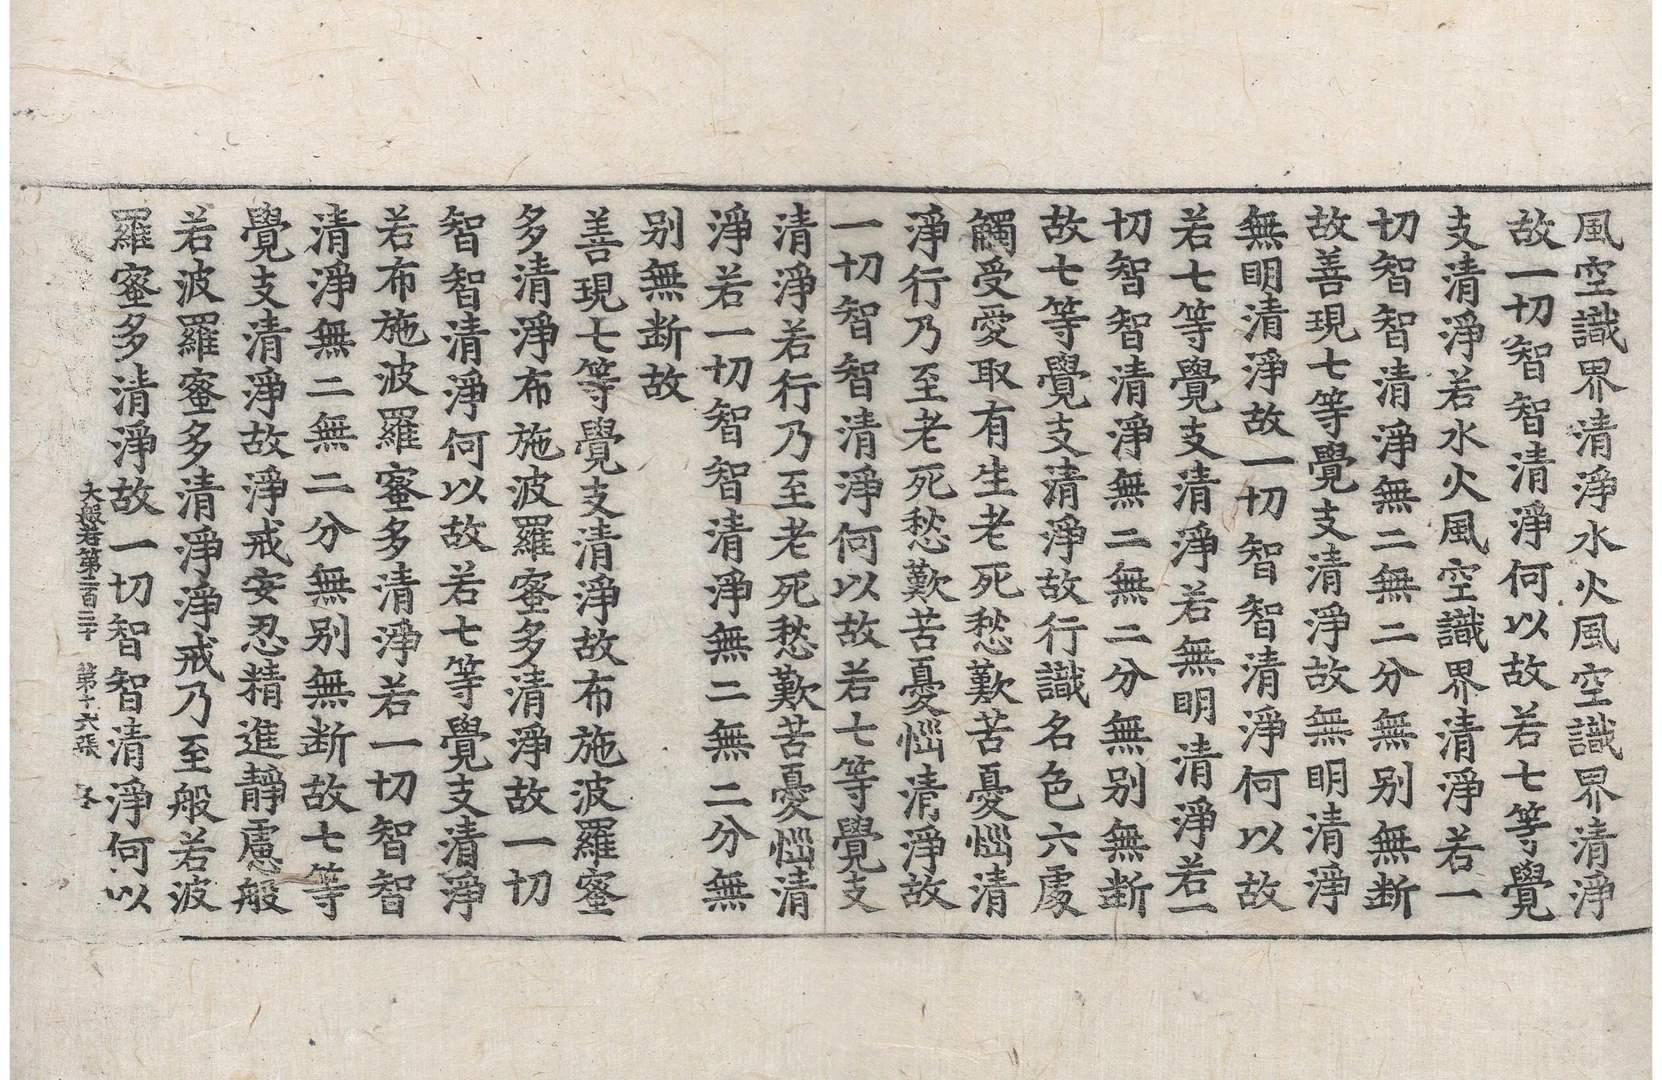 風空識界清淨水火風空識界清淨
故一切智智清淨何以故若七等覺
支清淨若水火風空識界清淨若一
切智智清淨無二無二分無别無断
故善現七等覺支清淨故無明清淨
無明清淨故一切智智清淨何以故
若七等覺支清淨若無明清淨若一
切智智清淨無二無二分無别無断
故七等覺支清淨故行識名色六處
觸受愛取有生老死愁歎苦憂惱清
淨行乃至老死愁歎苦憂惱清淨故
一切智智清淨何以故若七等覺支
清淨若行乃至老死愁歎苦憂惱清
淨若一切智智清淨無二無二分無
别無断故
善現七等覺支清淨故布施波羅蜜
多清淨布施波羅蜜多清淨故一切
智智清淨何以故若七等覺支清淨
若布施波羅蜜多清淨若一切智智
清淨無二無二分無别無断故七等
覺支清淨故淨戒安忍精進靜慮般
若波羅蜜多清淨淨戒乃至般若波
羅蜜多清淨故一切智智清淨何以
大般若第二百三十 第十六張 冬